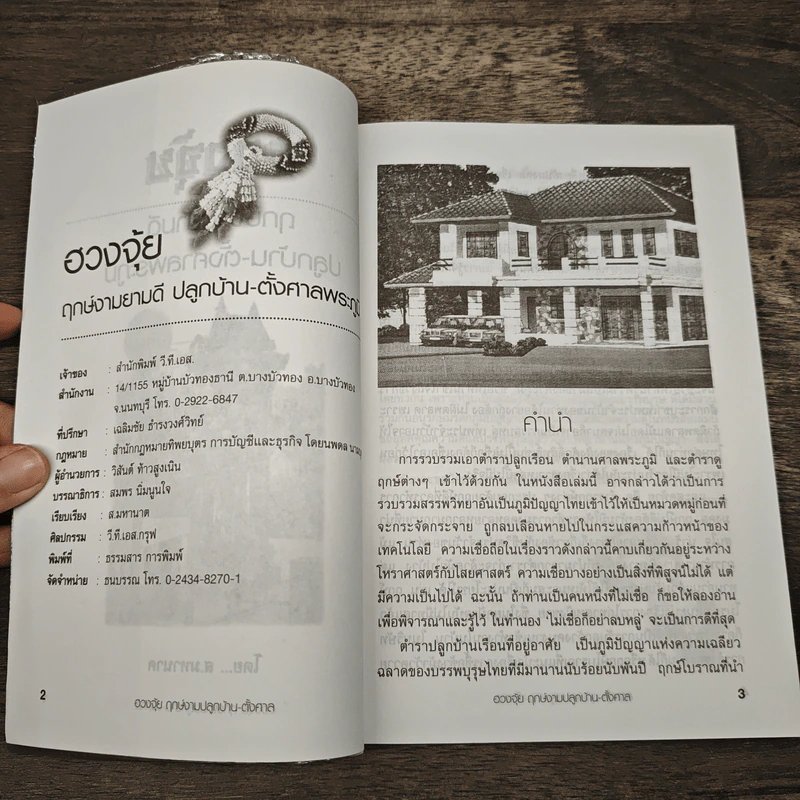 ฮวงจุ้ย
ฤกษ์งามยามดี ปลูกบ้าน-ตั้งศาลพระภูมิ
เจ้าของ : สำนักพิมพ์ วี.ที.เอส.
สำนักงาน : 14/1155 หมู่บ้านบัวทองธานี ต.บางบัวทอง อ.บางบัวทอง
จ.นนทบุรี โทร. 0-2922-6847
ที่ปรึกษา : เฉลิมชัย ธำรงวงศ์วิทย์
กฎหมาย : สำนักกฎหมายทิพยบุตร การบัญชีและธุรกิจ โดยนพดล
ผู้อำนวยการ : วิสันต์ ท้าวสูงเนิน
บรรณาธิการ : สมพร นิ่มนูนใจ
เรียบเรียง : ส.มหานาต
ศิลปกรรม : วี.ที.เอส.กรุฟ
พิมพ์ที่ : ธรรมสาร การพิมพ์
จัดจำหน่าย : ธนบรรณ โทร. 0-2434-8270-1
2
ฮวงจุ้ย ฤกษ์งามปลูกบ้าน-ตั้งศาล
คำนำ
การรวบรวมเอาตำราปลูกเรือน ตำนานศาลพระภูมิ และตำราดู
ฤกษ์ต่างๆ เข้าไว้ด้วยกัน ในหนังสือเล่มนี้ อาจกล่าวได้ว่าเป็นการ
รวบรวมสรรพวิทยาอันเป็นภูมิปัญญาไทยเข้าไว้ให้เป็นหมวดหมู่ก่อนที่
จะกระจัดกระจาย ถูกลบเลือนหายไปในกระแสความก้าวหน้าของ
เทคโนโลยี ความเชื่อถือในเรื่องราวดังกล่าวนี้คาบเกี่ยวกันอยู่ระหว่าง
โหราศาสตร์กับไสยศาสตร์ ความเชื่อบางอย่างเป็นสิ่งที่พิสูจน์ไม่ได้ แต่
มีความเป็นไปได้ ฉะนั้น ถ้าท่านเป็นคนหนึ่งที่ไม่เชื่อ ก็ขอให้ลองอ่าน
เพื่อพิจารณาและรู้ไว้ ในทำนอง 'ไม่เชื่อก็อย่าลบหลู่' จะเป็นการดีที่สุด
ตำราปลูกบ้านเรือนที่อยู่อาศัย เป็นภูมิปัญญาแห่งความเฉลียว
ฉลาดของบรรพบุรุษไทยที่มีมานานนับร้อยนับพันปี ฤกษ์โบราณที่นำ
ฮวงจุ้ย ฤกษ์งามปลูกบ้าน-ตั้งศาล
3